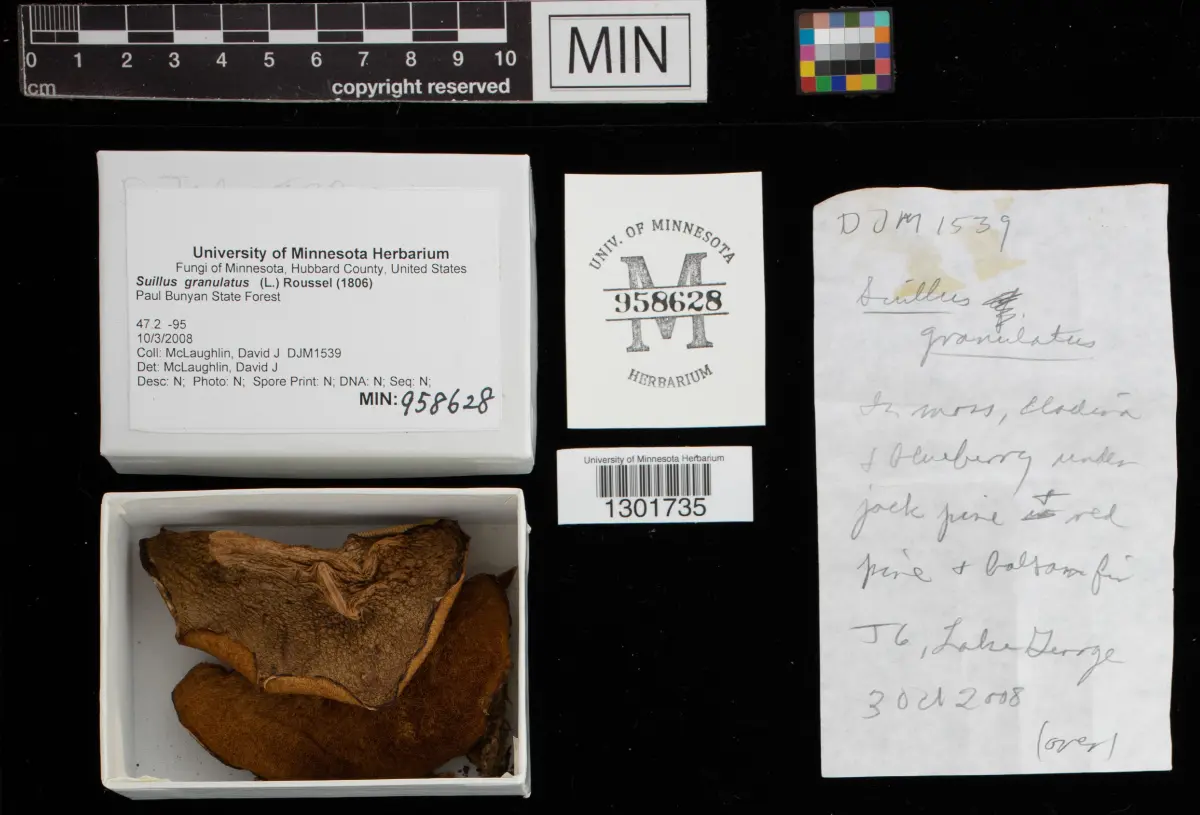 0 1 2 3 4 5 6 7 8 9 10
cm
copyright reserved
MIN
University of Minnesota Herbarium
Fungi of Minnesota, Hubbard County, United States
Suillus granulatus (L.) Roussel (1806)
Paul Bunyan State Forest
47.2 -95
10/3/2008
Coll: McLaughlin, David J DJM1539
Det: McLaughlin, David J
Desc: N; Photo: N; Spore Print: N; DNA: N; Seq: N;
MIN: 958628
UNIV. OF MINNESOTA
M
958628
HERBARIUM
University of Minnesota Herbarium
1301735
DJM 1539
Suillus
granulatus
In moss, Cladina
+ blueberry under
jack pine + red
pine + balsam fir
J6, Lake George
3 Oct 2008
(over)